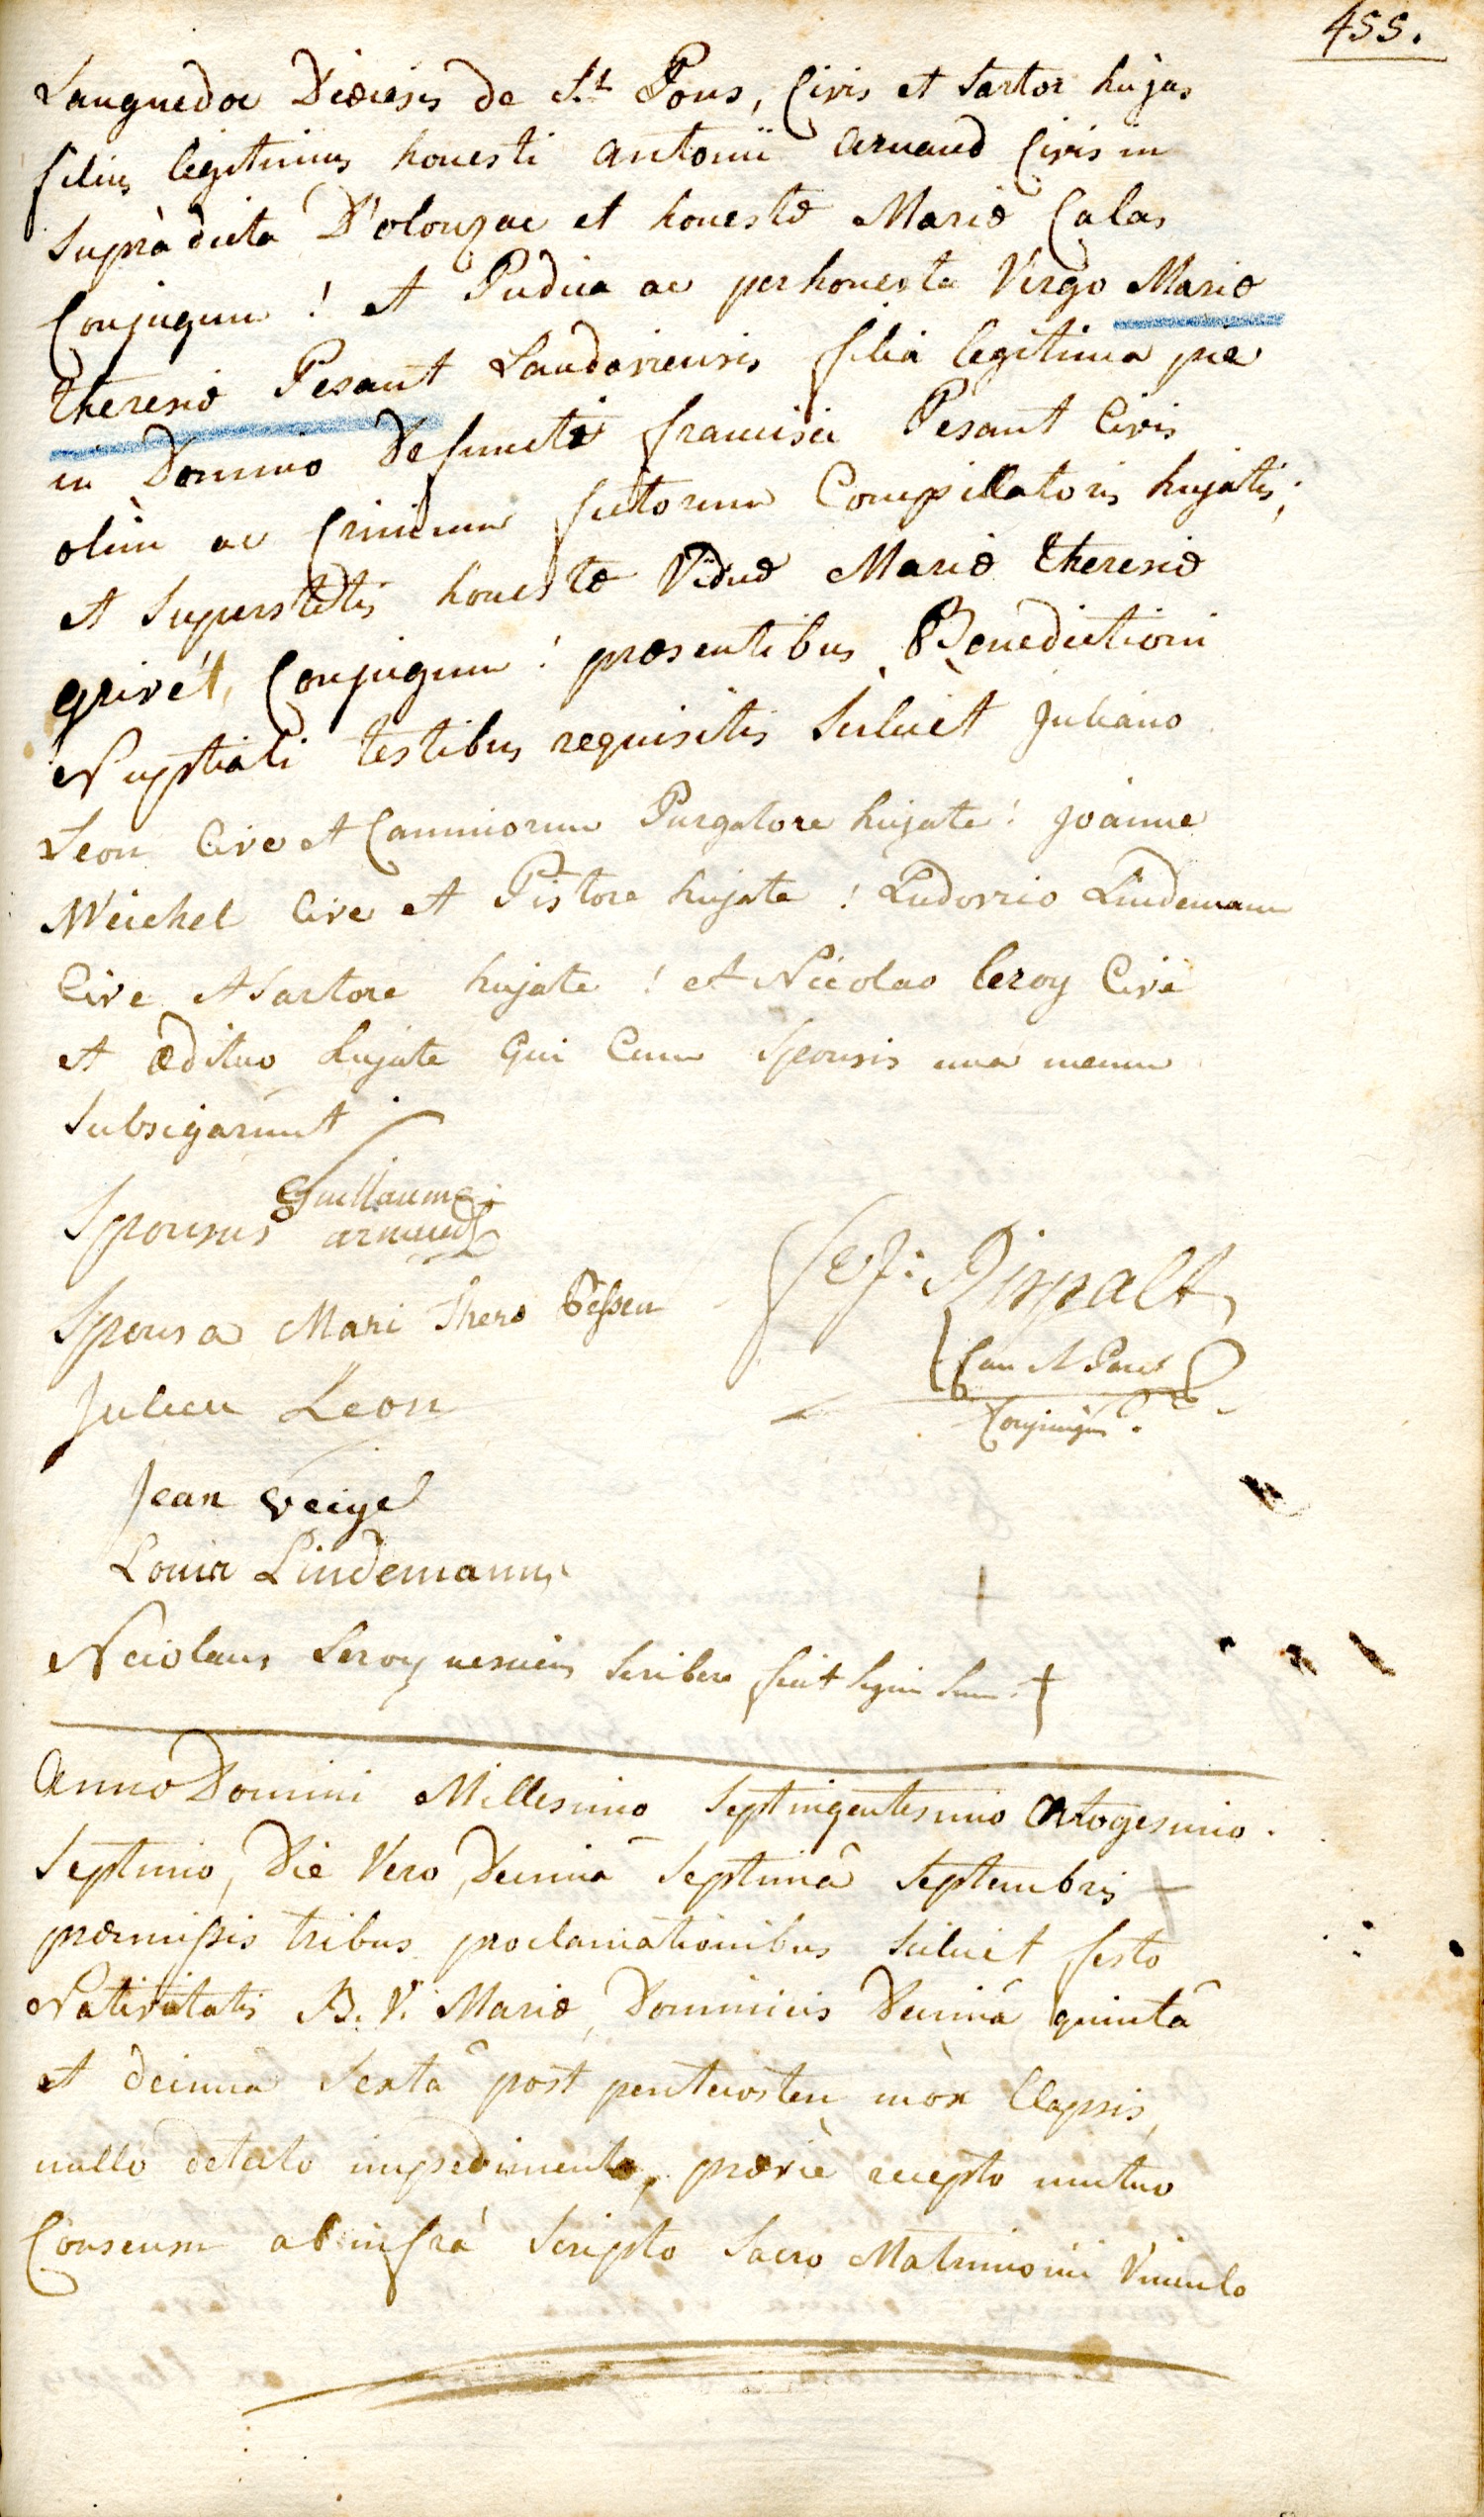 455.
Languedoc Diœcesis de St Pons, Civis et Sartor hujas
filius legitimus honesti antonii arnaud Civis in
Supràdicta D'olonzac et honestæ Mariæ Calas
Conjugum ! et Pudica ac perhonesta Virgo Mariæ
theresiæ Pesant Landaviensis filia legitima piè
in Domino Defuncti francisci Pesant Civis
olim ac Crinium fictorum Compillatoris hujatis;
et Superstitis honestæ Viduæ Mariæ theresiæ
grivét, Conjugum ! præsentibus Benedictioni
Nuptiali testibus requisitis Scilicet Juliano
Leon Cive et Caminorum Purgatore hujate ! Joanne
Weichel Cive et Pistore hujate ! Ludovico Lindemann
Cive et Sartore hujate ! et Nicolao leroy Cive
et ædituo hujate Qui Cum Sponsis una mecum
Subsigarunt
Sponsus Guillaume
arnaud
Sponsa Mari Theres Bessen
Julien Leon
Jean veigel
Louis Lindemann
Nicolaus Leroy nesciens Scribere fecit Signum Suum †
Can et Paro
Anno Domini Millesimo Septingentesimo Octogesimo
Septimo, Die Vero Decimâ Septimâ Septembris
præmissis tribus proclamationibus Scilicet festo
Nativitatis B. V. Mariæ, Dominicis Decimâ quintâ
et decimâ Sextâ post pentecosten mòx Elapsis,
nullo detecto impedimento, præviè recepto mutuo
Consensu ab infrà Scripto Sacro Matrimonii Vinculo